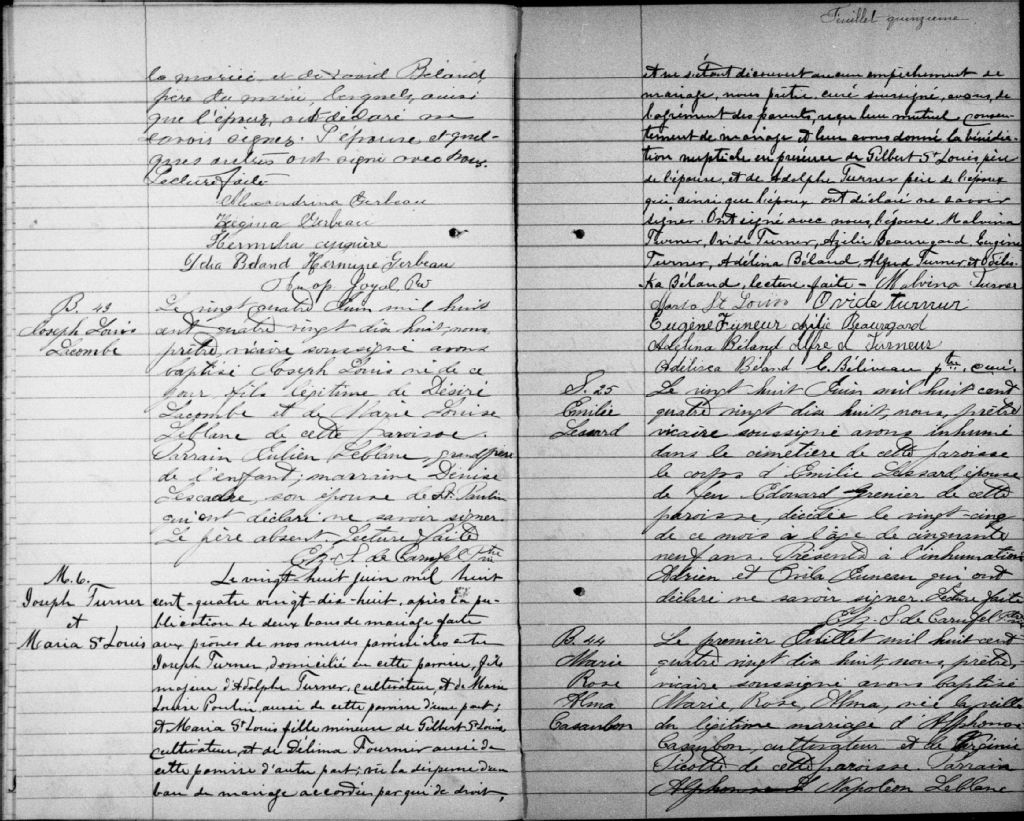 la mariée et de David Béland,
père du marié lesquels, ainsi
que l'époux, ont déclaré ne
savoir signer. L'épouse et quel-
ques autres ont signé avec nous.
Lecture faite
Alexandrina Gerbeau
Régina Gerbeau
Hermelia
Ydia Béland Hermine Gerbeau
Joyal Ptre
B. 43
Joseph Louis
Lacombe
Le vingt quatre Juin mil huit
cent quatre vingt dix huit, nous,
prêtre, vicaire soussigné avons
baptisé Joseph Louis né de ce
jour, fils légitime de Désiré
Lacombe et de Marie Louise
Leblanc de cette paroisse.
Parrain Julien Leblanc, grandpère
de l'enfant; marraine Denise
Lescadre, son épouse de St. Paulin
qui ont déclaré ne savoir signer.
Le père absent. Lecture faite
S. de Carufel Ptre
M. 6.
Joseph Turner
et
Maria St Louis
Le vingt huit juin mil huit
cent-quatre vingt-dix-huit, après la pu-
blication de deux bans de mariage faite
aux prônes de nos messes paroissiales entre
Joseph Turner, domicilié en cette paroisse, fils
majeur d'Adolphe Turner, cultivateur, et de Marie
Louise Poulin aussi de cette paroisse d'une part;
et Maria St Louis fille mineure de Gilbert St Louis,
cultivateur, et de Délima Fournier aussi de
cette paroisse d'autre part; vu la dispense d'un
ban de mariage accordée par qui de droit,
Feuillet quinzième
et ne s'étant découvert aucun empêchement de
mariage, nous prêtre, curé soussigné, avons, de
l'agrément des parents, reçu leur mutuel consen-
tement de mariage et leur avons donné la bénédic-
tion nuptiale en présence de Gilbert St Louis père
de l'épouse, et de Adolphe Turner père de l'époux
qui ainsi que l'époux ont déclaré ne savoir
signer. Ont signé avec nous, l'épouse, Malvina
Turner, Ovide Turner, Azilie Beauregard, Eugène
Turner, Adélina Béland, Alfred Turner, et Adélis-
ka Béland, lecture faite - Malvina Turner
Maria St Louis Ovide turneur
Eugène Tuneur Azilie Beauregard
Adélina Béland Alfred Turneur
Adélisca Béland C. Béliveau ptre, curé.
S. 25
Emilie
Lessard
Le vingt huit Juin mil huit cent
quatre vingt dix huit, nous, prêtre
vicaire soussigné avons inhumé
dans le cimetière de cette paroisse
le corps d'Emilie Lessard, épouse
de feu Edouard Grenier de cette
paroisse, décédée le vingt-cinq
de ce mois à l'âge de cinquante
neuf ans. Présents à l'inhumation
Adrien et Orila Juneau qui ont
déclaré ne savoir signer. Lecture faite
S. de Carufel Ptre
B. 44
Marie
Rose
Alma
Casaubon
Le premier Juillet mil huit cent
quatre vingt dix huit, nous, prêtre,
vicaire soussigné avons baptisé
Marie, Rose, Alma, née la veille
du légitime mariage d'Alphonse
Casaubon, cultivateur et de Virginie
Sicotte de cette paroisse. Parrain
Alphonse L Napoléon Leblanc